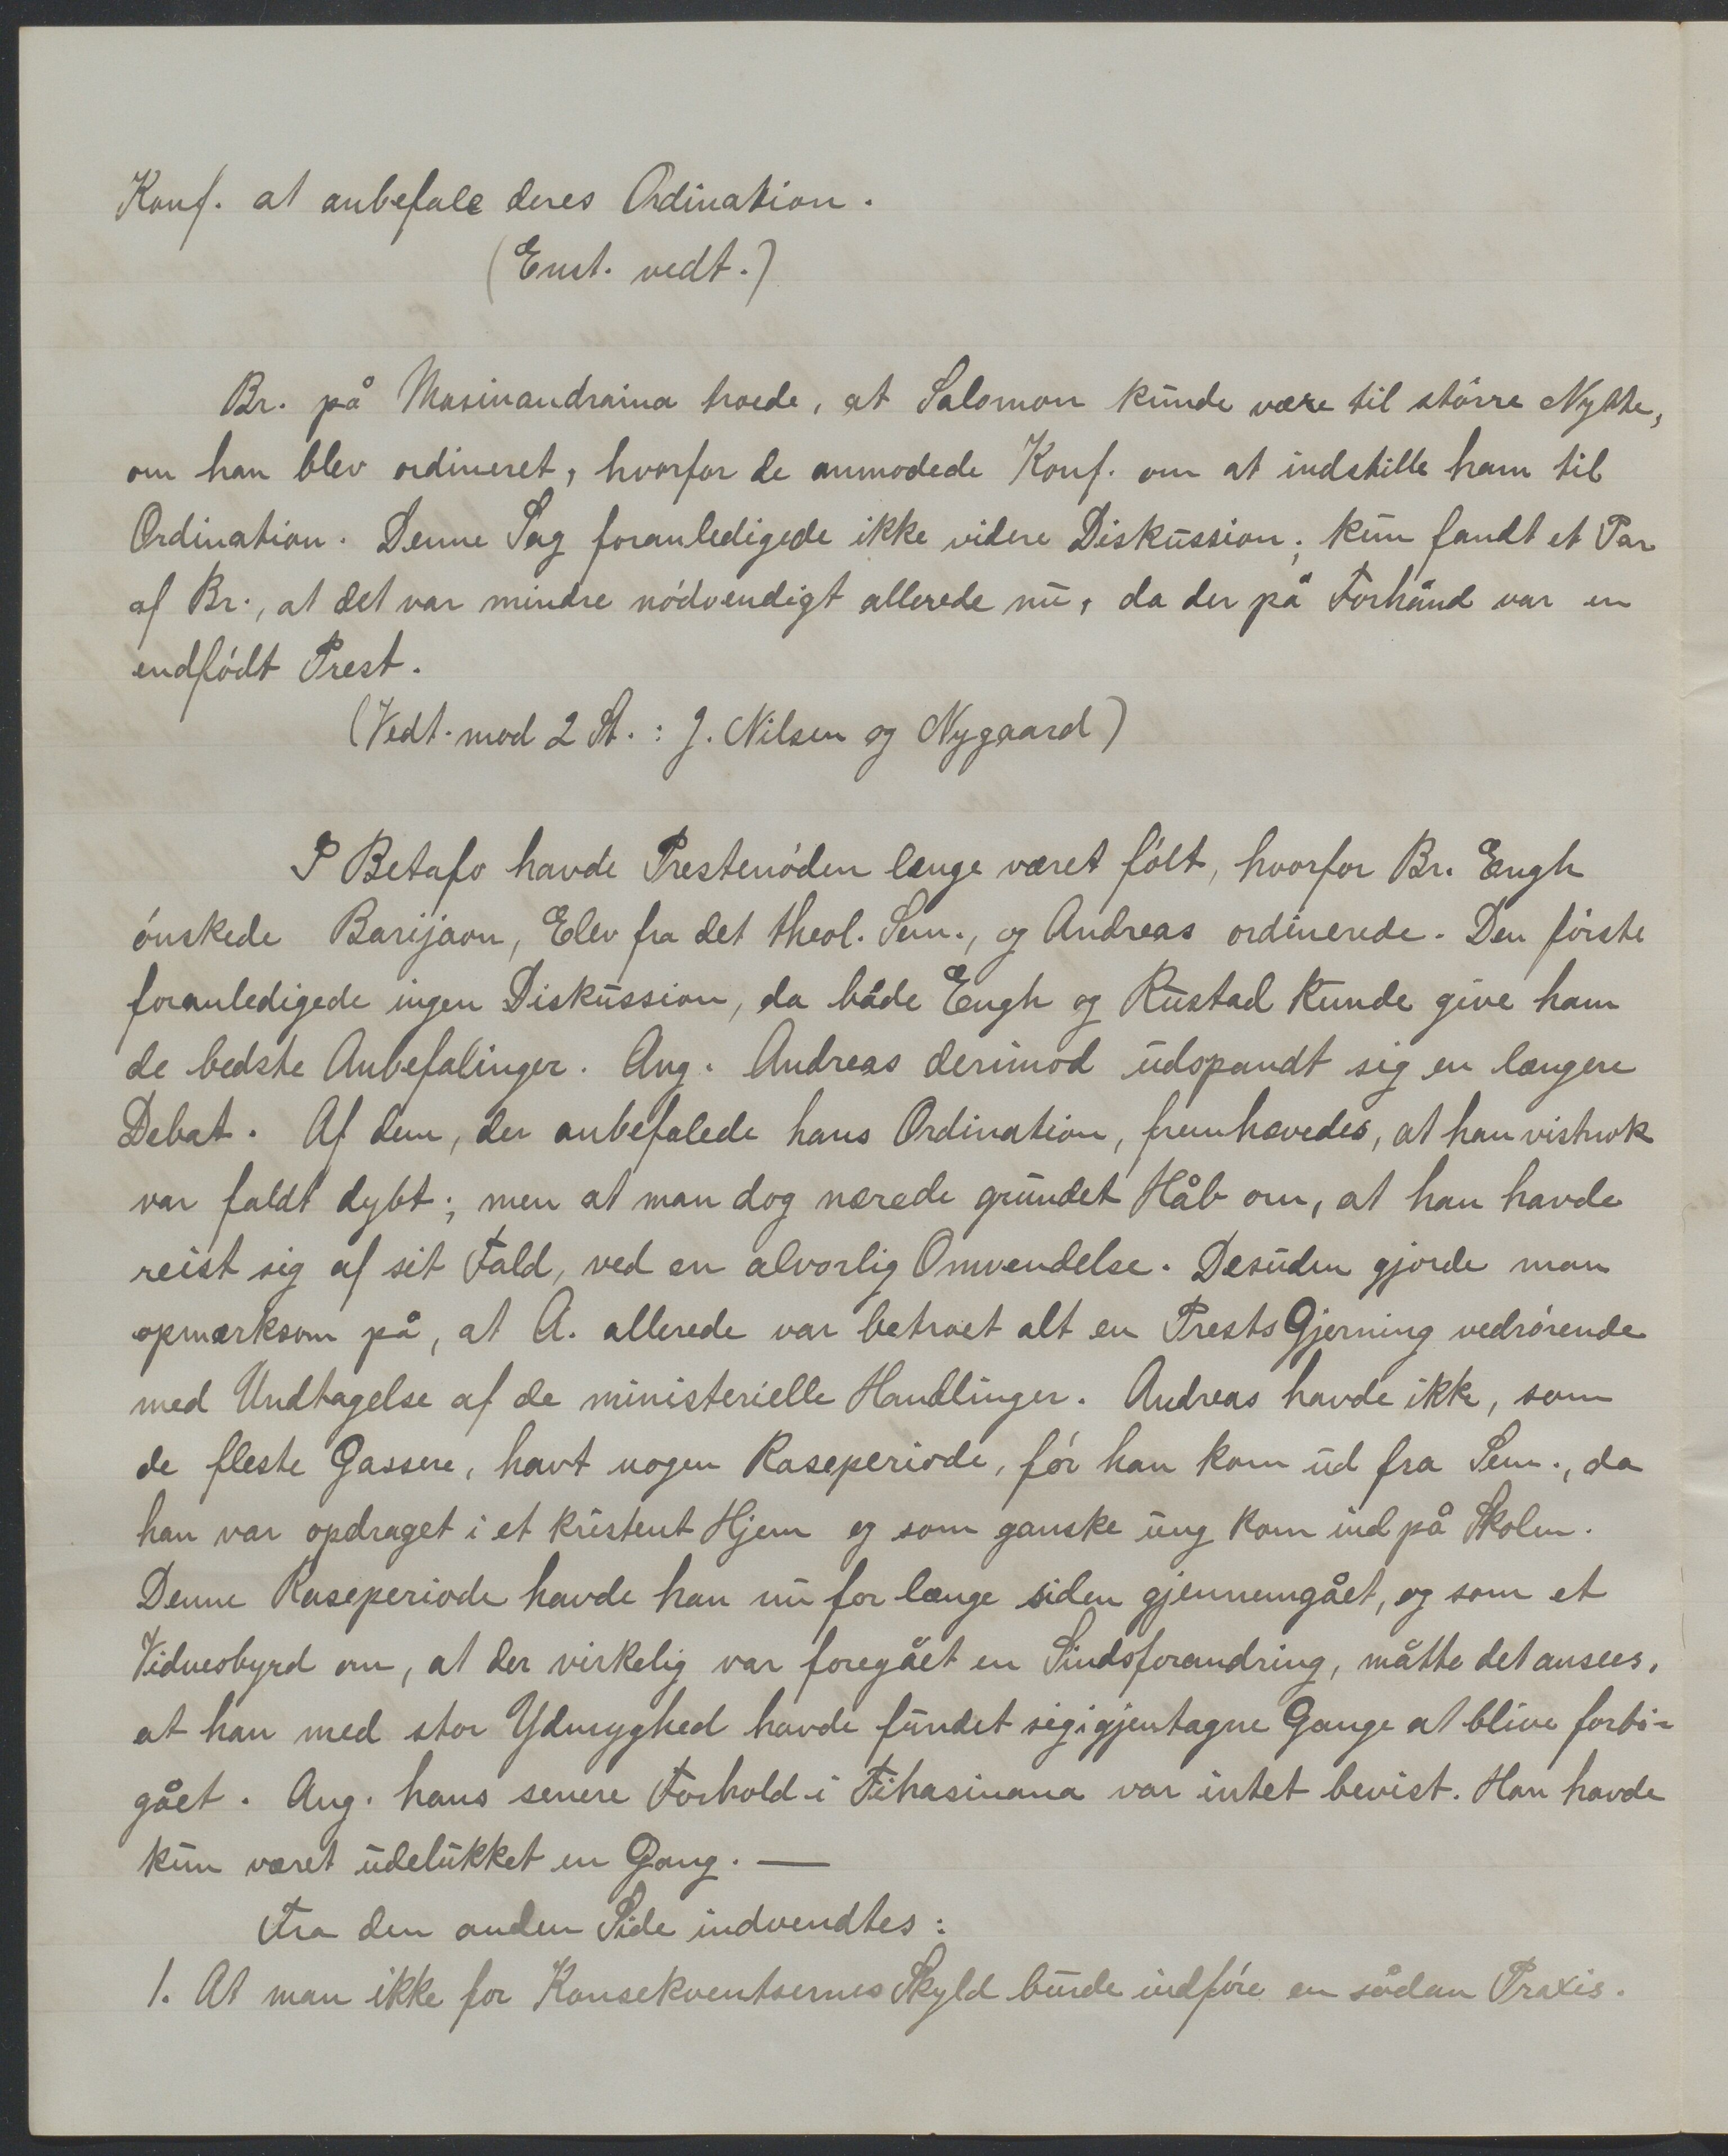 Konf. at anbefale deres Ordination.
(Enst. vedt.)
Br. på Masinandraina troede, at Salomon kunde være til større Nytte,
om han blev ordineret, hvorfor de anmodede Konf. om at indstille ham til
Ordination. Denne Sag foranledigede ikke videre Diskussion; kun fandt et Par
af Br., at det var mindre nødvendigt allerede nu, da der på Forhånd var en
endfødt Prest.
(Vedt. mod 2 St.: J. Nilsen og Nygaard)
I Betafo havde Prestenøden længe været følt, hvorfor Br. Engh
ønskede Barijaon, Elev fra det theol. Sem., og Andreas ordinerede. Den første
foranledigede ingen Diskussion, da både Engh og Rustad kunde give ham
de bedste Anbefalinger. Ang. Andreas derimod udspandt sig en længere
Debat. Af dem, der anbefalede hans Ordination, fremhævedes, at han vistnok
var faldt dybt; men at man dog nærede grundet Håb om, at han havde
reist sig af sit Fald, ved en alvorlig Omvendelse. Desuden gjorde man
opmærksom på, at A. allerede var betroet alt en Prests Gjerning vedrørende
med Undtagelse af de ministerielle Handlinger. Andreas havde ikke, som
de fleste Gassere, havt nogen Raseperiode, før han kom ud fra Sem., da
han var opdraget i et kristent Hjem og som ganske ung kom ind på Skolen.
Denne Raseperiode havde han nu for længe siden gjennemgået, og som et
Vidnesbyrd om, at der virkelig var foregået en Sindsforandring, måtte det ansees,
at han med stor Ydmyghed havde fundet sig i gjentagne Gange at blive forbi-
gået. Ang. hans senere Forhold i Fihasinana var intet bevist. Han havde
kun været udelukket en Gang. —
Fra den anden Side indvendtes:
1. At man ikke for Konsekventsernes Skyld burde indføre en sådan Praxis.